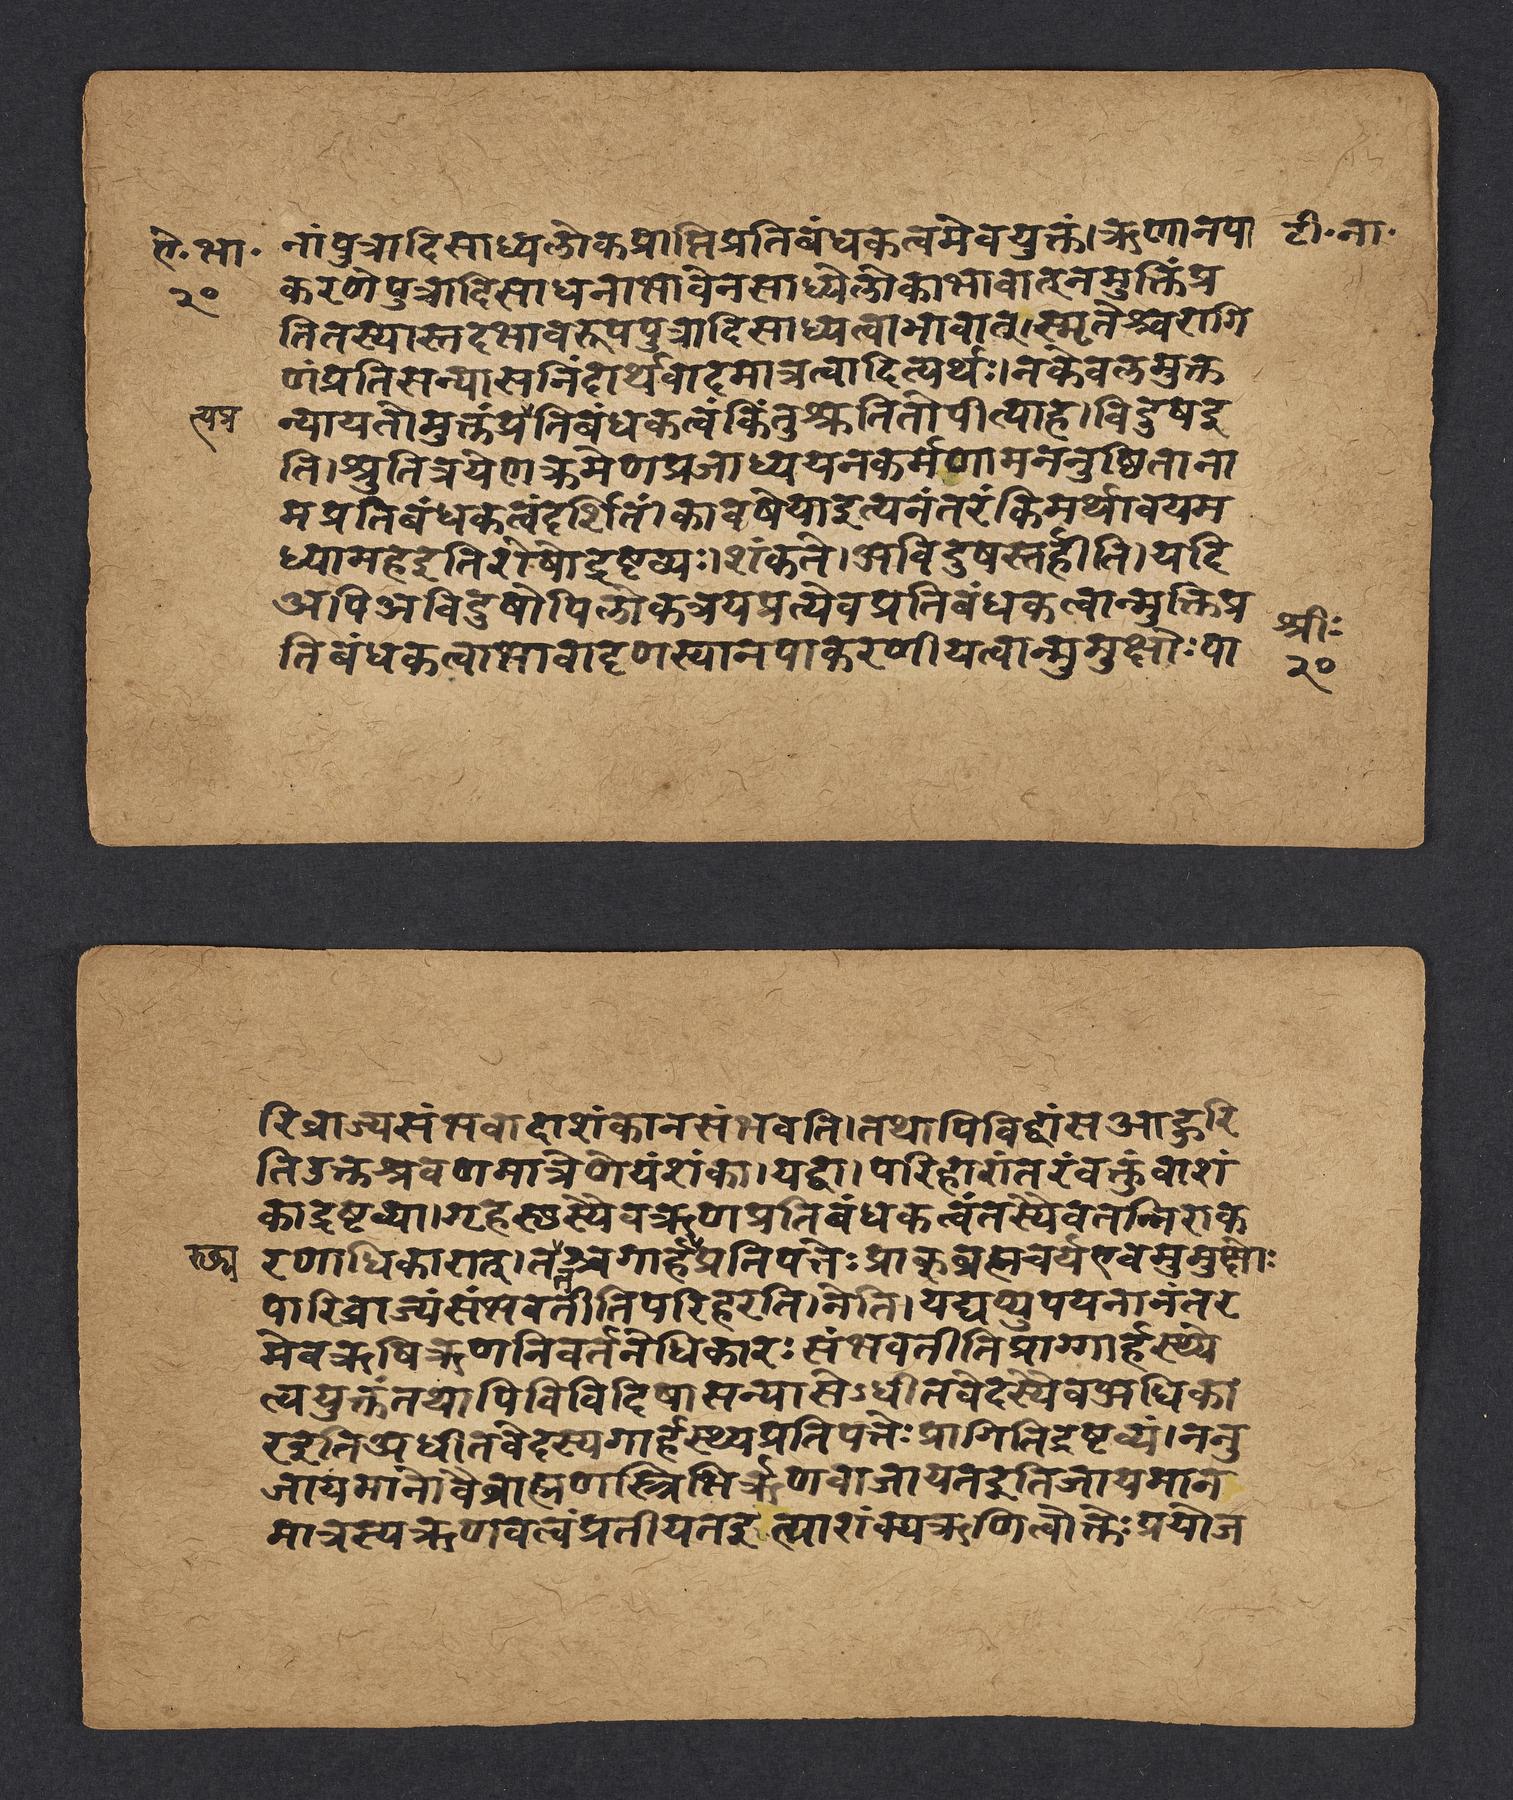 ऐ॰भा॰ नांपुत्रादिसाध्यलोकप्राप्तिप्रतिबंधकत्वमेवयुक्तं।ऋणानपा टी॰ना॰
२० करणेपुत्रादिसाधनाभावेनसाध्यलोकाभावात्ननमुक्तिंप्र
तितस्यास्तदभावरूपपुत्रादिसाध्यत्वाभावात्।स्मृतेश्चरागि
णंप्रतिसन्यासनिंदार्थवादमात्रत्वादित्यर्थः।नकेवलमुक्त
त्यप्र न्यायतोमुक्तंप्रतिबंधकत्वंकिंतुश्रुतितोपीत्याह।विदुषइ
ति।श्रुतित्रयेणक्रमेणप्रजाध्ययनकर्मणामननुष्ठिताना
मप्रतिबंधकत्वंदर्शितं।कावषेयाइत्यनंतरंकिमर्थावयम
ध्यामहेइतिशेषोद्रष्टव्यः।शंकते।अविदुषस्तर्हीति।यदि
अपिअविदुषोपिलोकत्रयप्रत्येवप्रतिबंधकत्वान्मुक्तिप्र
श्रीः
तिबंधकत्वाभावादृणस्यानपाकरणीयत्वान्मुमुक्षोःपा
२०
रिव्राज्यसंभवादाशंकानसंभवति।तथापिविद्वांसआहुरि
तिउक्तश्रवणमात्रेणेयंशंका।यद्वा।परिहारांतरंवक्तुंवाशं
काद्रष्टव्या।गृहस्थस्यैवऋणप्रतिबंधकत्वंतस्यैवतन्निराक
रणाधिकारात्।ततश्चगार्हप्रतिपत्तेःप्राक्ब्रह्मचर्यएवमुमुक्षोः
पारिव्राज्यंसंभवतीतिपरिहरति।नेति।यद्यप्युपयनानंतर
मेवऋषिऋणनिवर्तनेधिकारःसंभवतीतिप्राग्गार्हस्थ्ये
त्ययुक्तंतथापिविविदिषासन्यासेऽधीतवेदस्यैवअधिका
रइतिअधीतवेदस्यगार्हस्थ्यप्रतिपत्तेःप्रागितिद्रष्टव्यं।ननु
जायमानोवैब्राह्मणस्त्रिभिर्ऋणवाजायतइतिजायमान
मात्रस्यऋणवत्वंप्रतीयतइत्याशंक्यऋणित्वोक्तेःप्रयोज